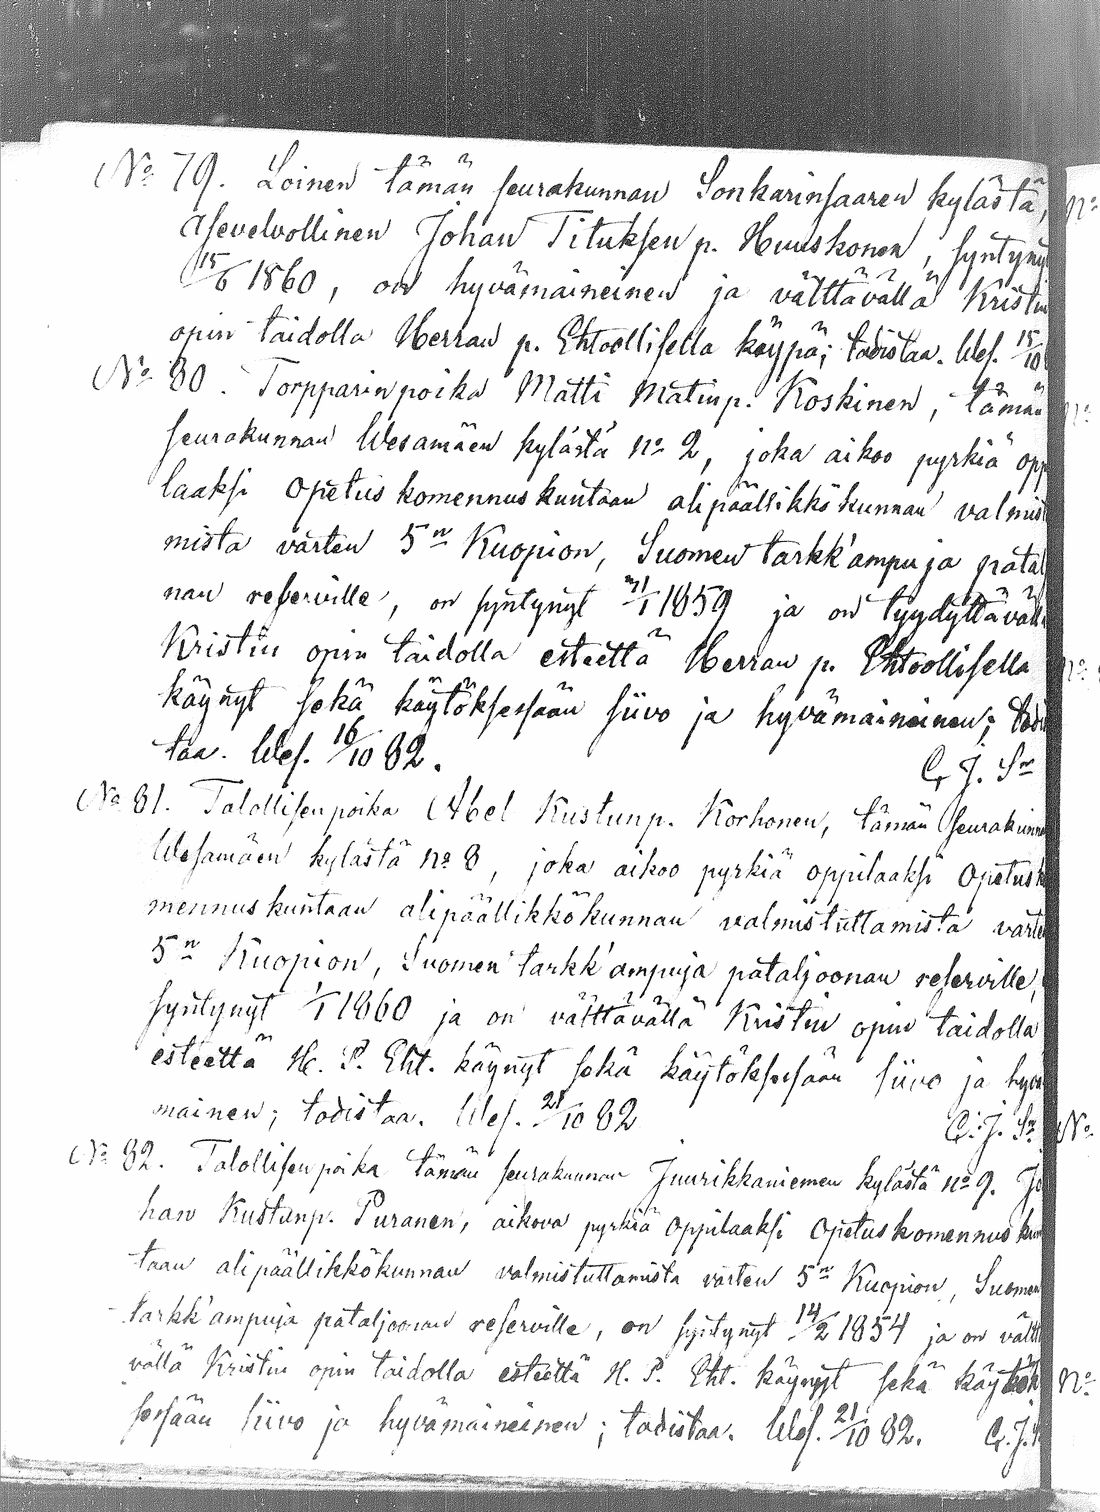 No 79. Loinen tämän seurakunnan Sonkarinsaaren kylästä,
Asevelvollinen Johan Tituksen p. Huuskonen, syntyny
15/6 1860, on hyvämaineinen ja välttävällä Kristin
opin taidolla Herran p. Ehtoollisella käypä; todistaa. Wes. 15/10
No 80. Torpparin poika Matti Matinp. Koskinen, tämän
seurakunnan Wesamäen kylästä no 2, joka aikoo pyrkiä opp
laaksi Opetuskomennuskuntaan alipäällikkökunnan valmist
mista varten 5n Kuopion, Suomen tarkk'ampuja patal
nan reserville, on syntynyt /1 1859 ja on tyydyttäväll
Kristin opin taidolla esteettä Herran p. Ehtoollisella
käynyt sekä käytöksessään siivo ja hyvämaineinen; todis
taa. Wes. 16/10 82.
C. J. Sn
No 81. Talollisen poika Abel Kustunp. Korhonen, tämän seurakunna
Wesamäen kylästä no 8, joka aikoo pyrkiä oppilaaksi Opetusk
mennuskuntaan alipäällikkökunnan valmistuttamista varte
5n Kuopion, Suomen tarkk'ampuja pataljoonan reserville,
syntynyt 1/1 1860 ja on välttävällä Kristin opin taidolla
esteettä H. P. Eht. käynyt sekä käytöksessään siivo ja hyvä
mainen; todistaa. Wes. 21/10 82
C. J. Sn
No 82. Talollisen poika tämän seurakunnan Juurikkaniemen kylästä no 9. Jo
han Kustunp. Puranen, aikova pyrkiä oppilaaksi Opetuskomennuskun
taan alipäällikkökunnan valmistuttamista varten 5n Kuopion, Suomen
tarkk'ampuja pataljoonan reserville, on syntynyt 14/2 1854 ja on vältt
vällä Kristin opin taidolla esteettä H. P. Eht. käynyt sekä käytök
sessään siivo ja hyvämaineinen; todistaa. Wes. 21/10 82.
C. J. S
No
No
No
No
No